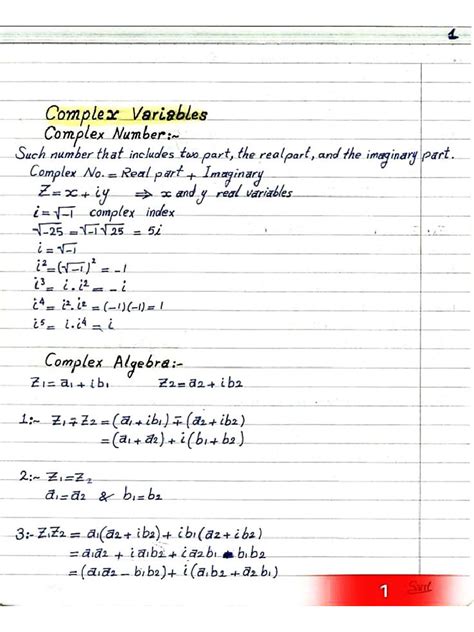 1
Complex Variables
Complex Number:~
Such number that includes two part, the real part, and the imaginary part.
Complex No. = Real part + Imaginary
Z = x + iy ⇒ x and y real variables
i = √-1 complex index
√-25 = √-1 √25 = 5i
i = √-1
i² = (√-1)² = -1
i³ = i . i² = - i
i⁴ = i² . i² = (-1)(-1) = 1
i⁵ = i . i⁴ = i
Complex Algebra:-
Z1 = a1 + ib1 Z2 = a2 + ib2
1:~ Z1 ∓ Z2 = (a1 + ib1) ∓ (a2 + ib2)
= (a1 + a2) + i(b1 + b2)
2:~ Z1 = Z2
a1 = a2 & b1 = b2
3:- Z1Z2 = a1(a2 + ib2) + ib1(a2 + ib2)
= a1a2 + i a1b2 + i a2b1 - b1b2
= (a1a2 - b1b2) + i(a1b2 + a2b1)
1